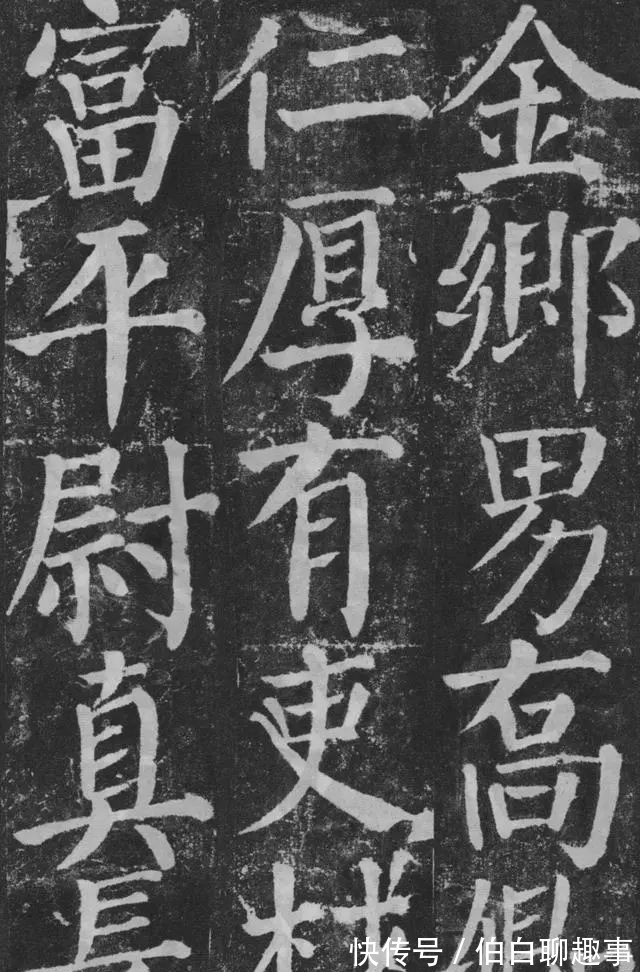 金鄉男喬卿
仁厚有吏材
富平尉真長
快传号/伯白聊趣事